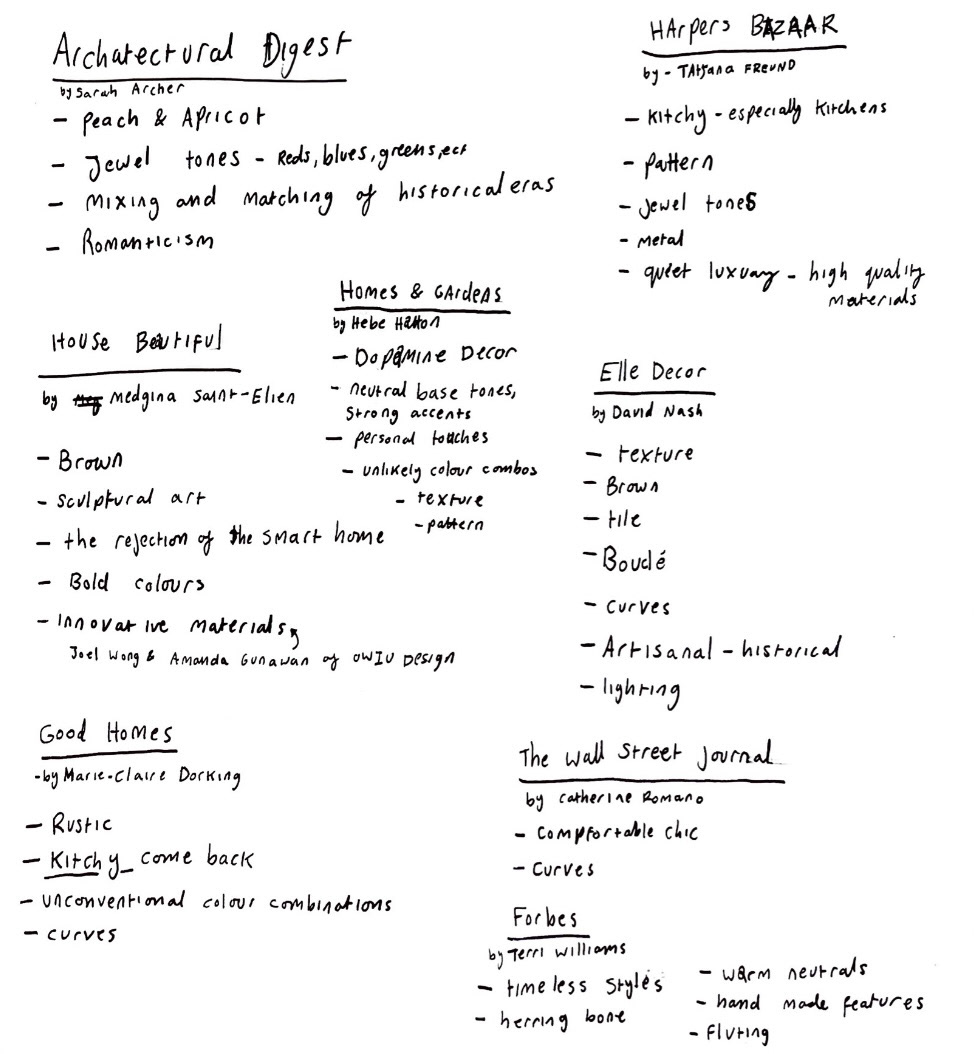 Archatectural Digest
by Sarah Archer
- Peach & Apricot
- Jewel tones - Reds, blues, greens, ect
- Mixing and Matching of historical eras
- Romanticism
HArpers BAZAAR
by - TAtjana FREUND
- Kitchy - especially Kitchens
- Pattern
- Jewel tones
- Metal
- quiet luxuary - high quality
materials
House Beautiful
by Medgina Saint-Elien
- Brown
- Sculptural art
- the rejection of the smart home
- Bold colours
- Innovative materials
Joel Wong & Amanda Gunawan of OWIU Design
Homes & GArdens
by Hebe Hatton
- Dopamine Decor
- neutral base tones,
Strong accents
- personal touches
- unlikely colour combos
- texture
- pattern
Elle Decor
by David Nash
- texture
- Brown
- tile
- Bouclé
- curves
- Artisanal - historical
- lighting
Good Homes
- by Marie-Claire Dorking
- Rustic
- Kitchy_ come back
- unconventional colour combinations
- curves
The Wall Street Journal
by Catherine Romano
- Compfortable chic
- Curves
Forbes
by Terri Williams
- timeless styles
- herring bone
- warm neutrals
- hand made features
- Fluting